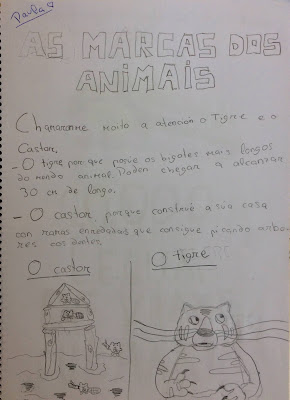 Paula
AS MARCAS DOS
ANIMAIS
Chamáronme moito a atención o Tigre e o
Castor.
- O tigre porque posúe os bigotes mais longos
do mundo animal. Poden chegar a alcanzar
30 cm de longo.
- O castor porque construé a súa casa
con ramas enredadas que consigue picando arbo-
res cos dentes.
O castor
O tigre